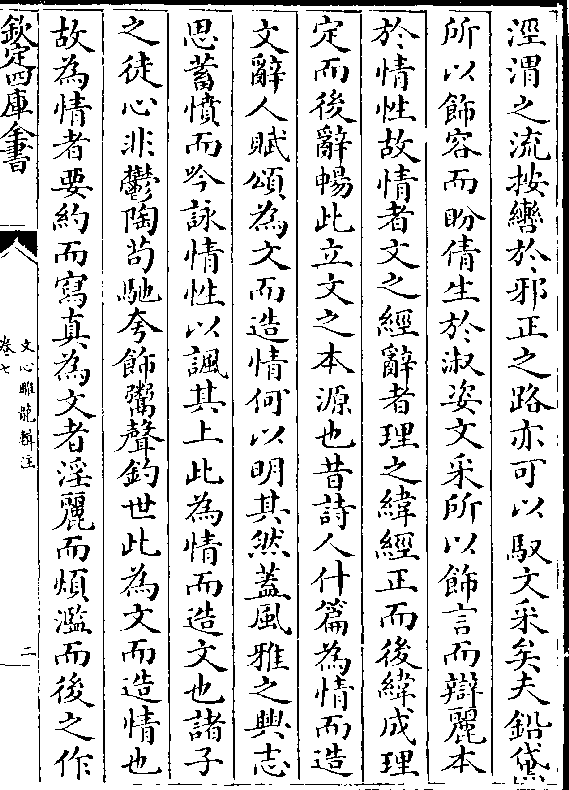 涇渭之流按轡於邪正之路亦可以馭文采矣夫鉛黛
所以飾容而盼倩生於淑姿文采所以飾言而辯麗本
於情性故情者文之經辭者理之緯經正而後緯成理
定而後辭暢此立文之本源也昔詩人什篇為情而造
文辭人賦頌為文而造情何以明其然蓋風雅之興志
思蓄憤而吟詠情性以諷其上此為情而造文也諸子
之徒心非鬱陶苟馳夸飾鬻聲釣世此為文而造情也
故為情者要約而寫真為文者淫麗而煩濫而後之作
欽定四庫全書
文心雕龍輯注
卷七
二